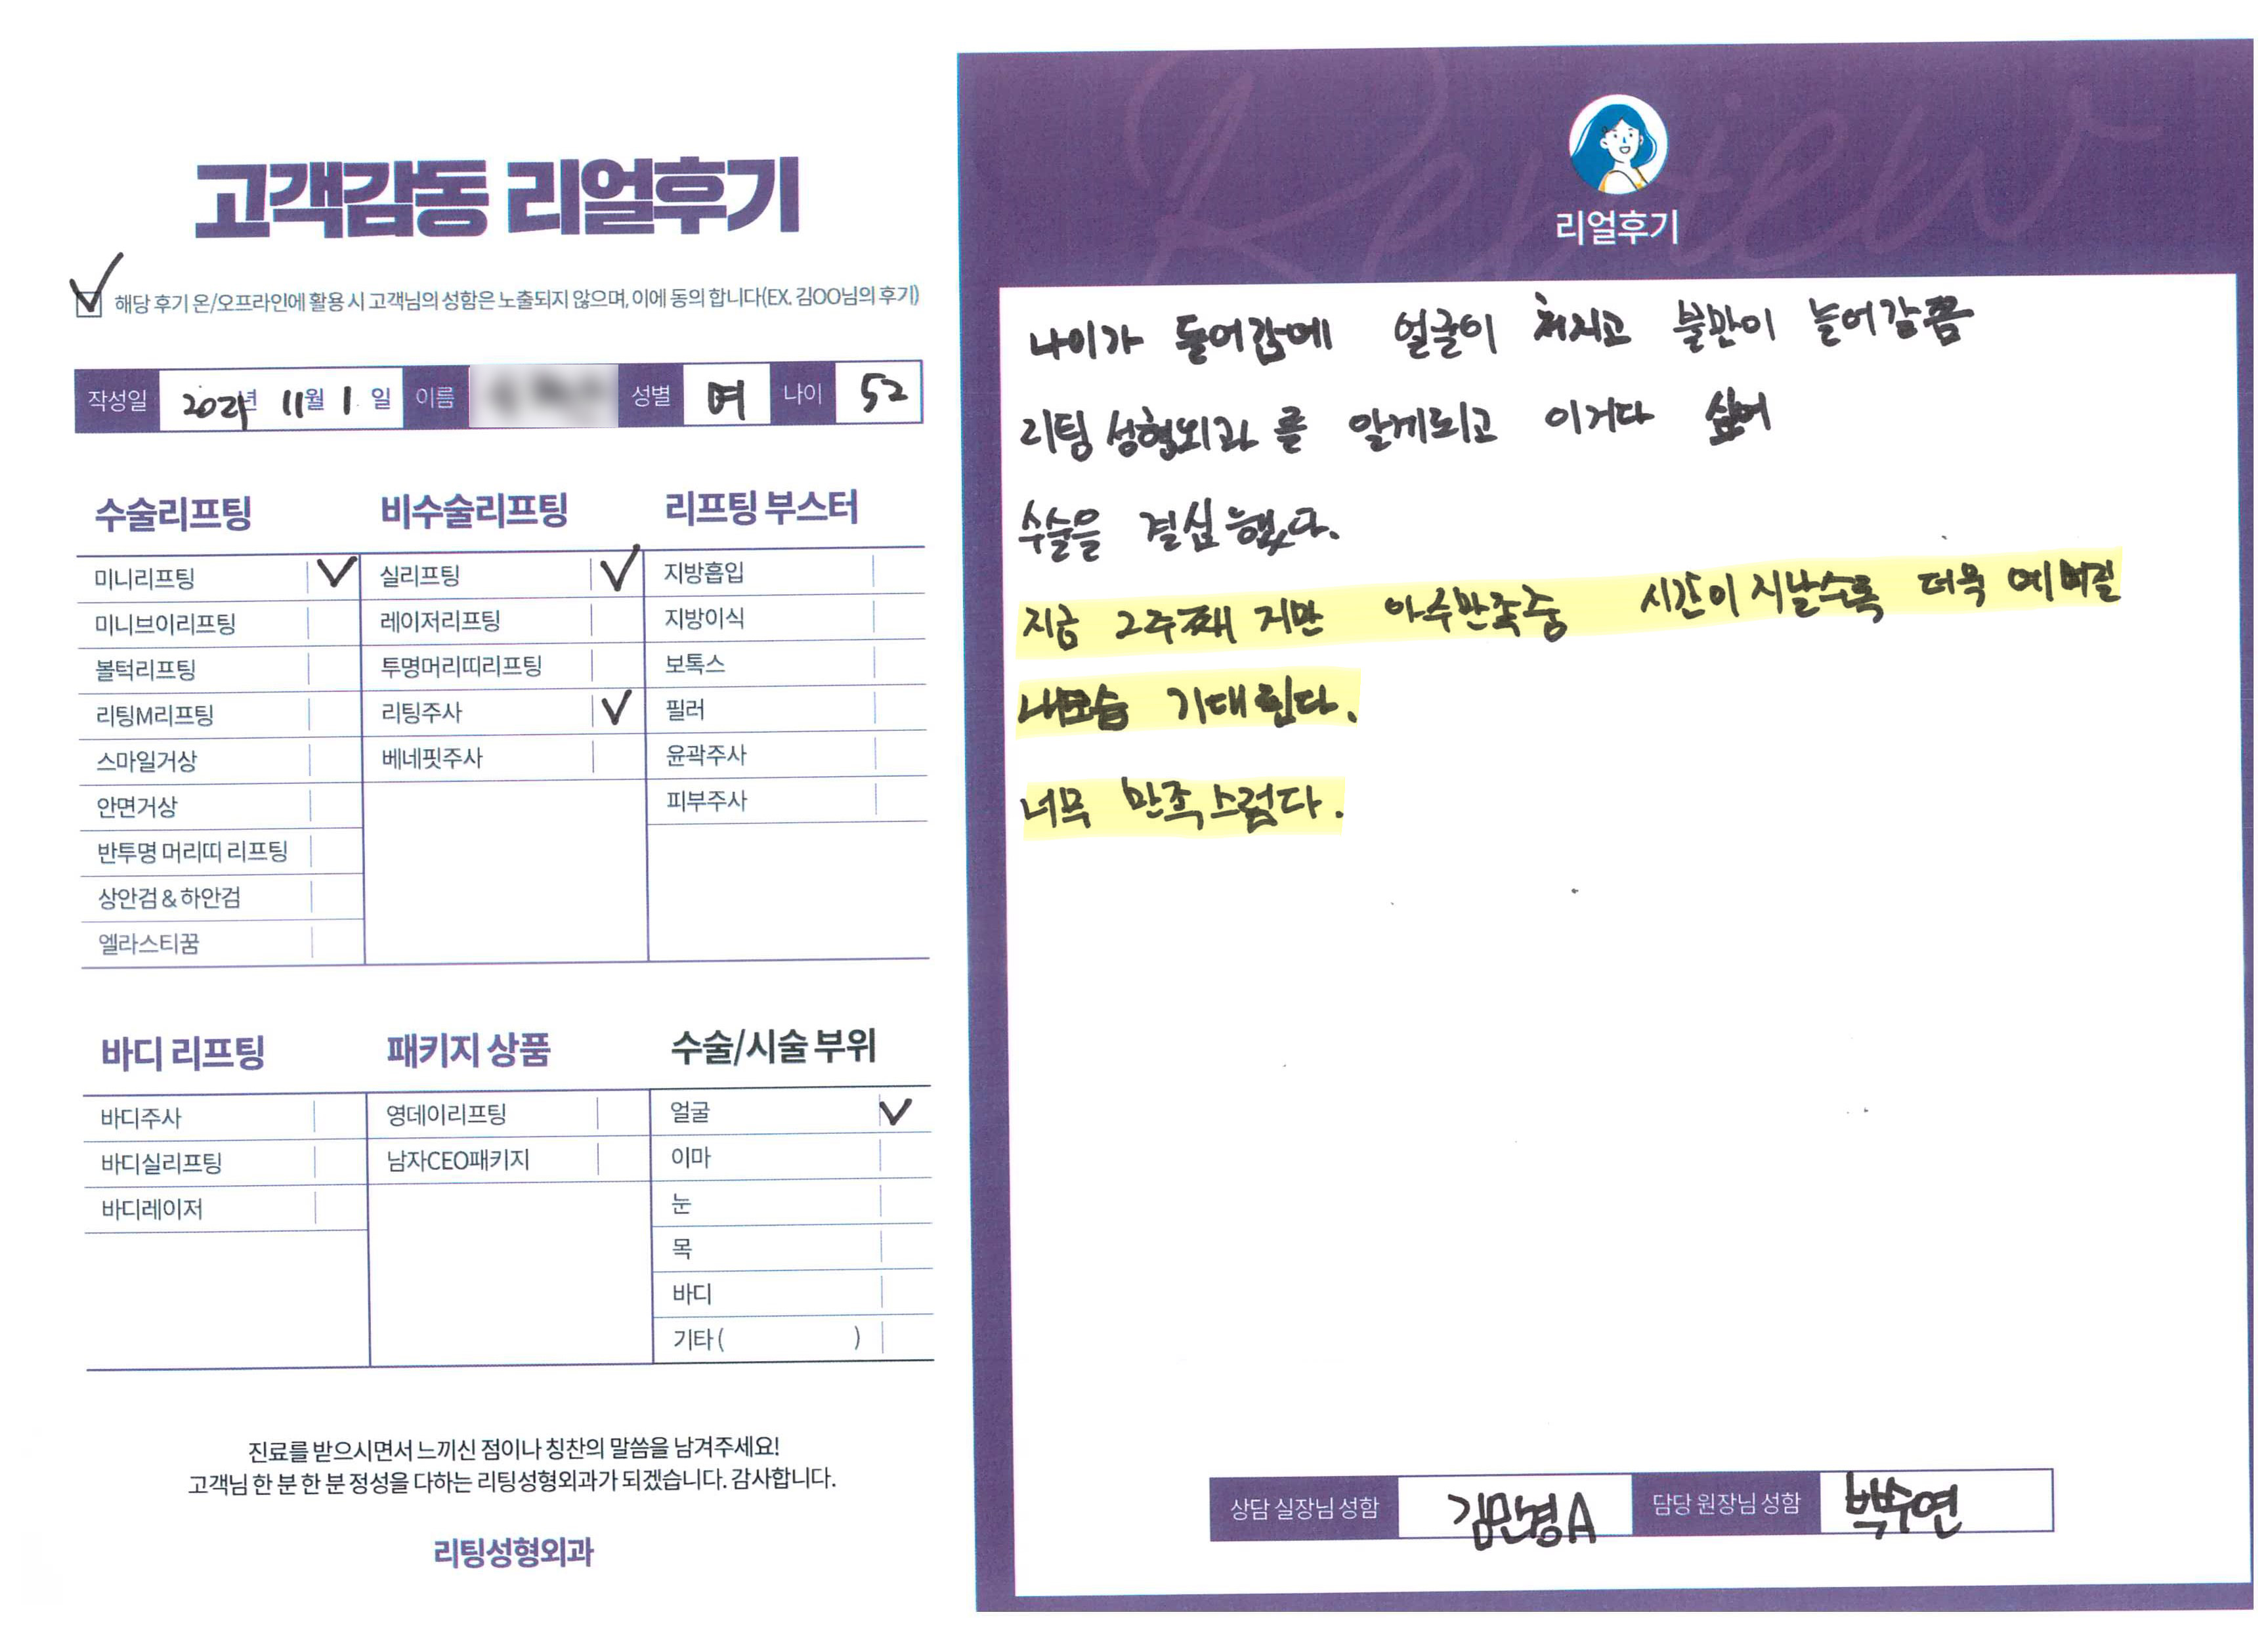 고객감동 리얼후기
해당 후기 온/오프라인에 활용 시 고객님의 성함은 노출되지 않으며, 이에 동의 합니다(EX. 김OO님의 후기)
작성일 2021년 11월 1일 이름 성별 여 나이 52
수술리프팅
미니리프팅
미니브이리프팅
볼턱리프팅
리팅M리프팅
스마일거상
안면거상
반투명 머리띠 리프팅
상안검 & 하안검
엘라스티꿈
비수술리프팅
실리프팅
레이저리프팅
투명머리띠리프팅
리팅주사
베네핏주사
리프팅 부스터
지방흡입
지방이식
보톡스
필러
윤곽주사
피부주사
바디 리프팅
바디주사
바디실리프팅
바디레이저
패키지 상품
영데이리프팅
남자CEO패키지
수술/시술 부위
얼굴
이마
눈
목
바디
기타 ( )
진료를 받으시면서 느끼신 점이나 칭찬의 말씀을 남겨주세요!
고객님 한 분 한 분 정성을 다하는 리팅성형외과가 되겠습니다. 감사합니다.
리팅성형외과
Review
리얼후기
나이가 들어감에 얼굴이 처지고 불만이 늘어갈쯤
리팅성형외과를 알게되고 이거다 싶어
수술을 결심했다.
지금 2주째 지만 아주만족중 시간이 지날수록 더욱 예뻐질
내모습 기대된다.
너무 만족스럽다.
상담 실장님 성함 김민경A 담당 원장님 성함 백수연